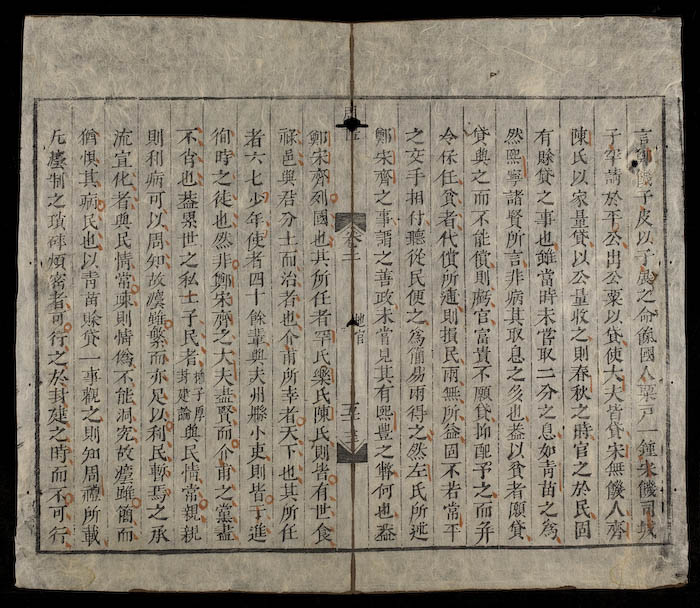 言鄭饑子皮以子展之命餼國人粟戶一鍾宋饑司城
子罕請於平公出公粟以貸使大夫皆貸宋無饑人齊
陳氏以家量貸以公量收之則春秋之時官之於民固
有賒貸之事也雖當時未嘗取二分之息如青苗之為
然熙寧諸賢所言非病其取息之多也蓋以貧者願貸
貸與之而不能償則虧官富貴不願貸抑配予之而并
令保任貧者代償所逋則損民兩無所益固不若常平
之交手相付聽從民便之為簡易兩得之然左氏所述
鄭宋齊之事謂之善政未嘗見其有熙豐之弊何也蓋
卷二
地官
五十三
鄭宋齊列國也其所任者罕氏樂氏陳氏則皆有世食
祿邑與君分土而治者也介甫所幸者天下也其所任
者六七少年使者四十餘輩與夫州縣小吏則皆干進
徇時之徒也然非鄭宋齊之大夫盡賢而介甫之黨盡
不肖也蓋累世之私土子民者柳子厚封建論與民情常親親
則利病可以周知故灋雖繁而亦足以利民暫焉之承
流宣化者與民情常疎則情偽不能洞究故灋雖簡而
猶懼其病民也以青苗賒貸一事觀之則知周禮所載
凡灋制之瑣碎煩密者可行之於封建之時而不可行